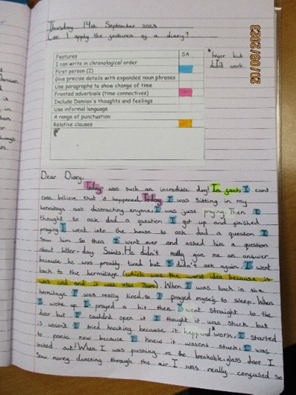 Thursday 14th September 2023
Can I apply the features of a diary?
Features SA
I can write in chronological order
First person (I)
Give precise details with expanded noun phrases
Use paragraphs to show change of time
Fronted adverbials (time connectives)
Include Damian's thoughts and feelings
Use informal language
A range of punctuation
Relative clauses
Dear Diary,
Today was such an incredible day! In fact I cant
even believe that it happened. Today I was sitting in my
hermitage not distracting enyone I was just praying. Then I
thought to ask dad a question. I got up and finished
praying. I went into the house to ask dad a question. I
saw him so then I went over and asked him a question
about latter-day Saints. He didn't really give me an answer
because he was probbly tired but I didn't ask again. I went
back to the hermitage (which was the worst idea because it
was cold and it was also ). When I was back in the
hermitage I was really tired so I prayed myself to sleep. When
I woke up I prayed a bit then I went straight to the
door but I couldn't open it I thought it was stuck but
it wasn't I tried knocking because it happend work. I started
to panic now because I knew it wasent stuck I was
locked out! When I was pushing on the breakable glass door I
saw money dancing through the air I was really confused so